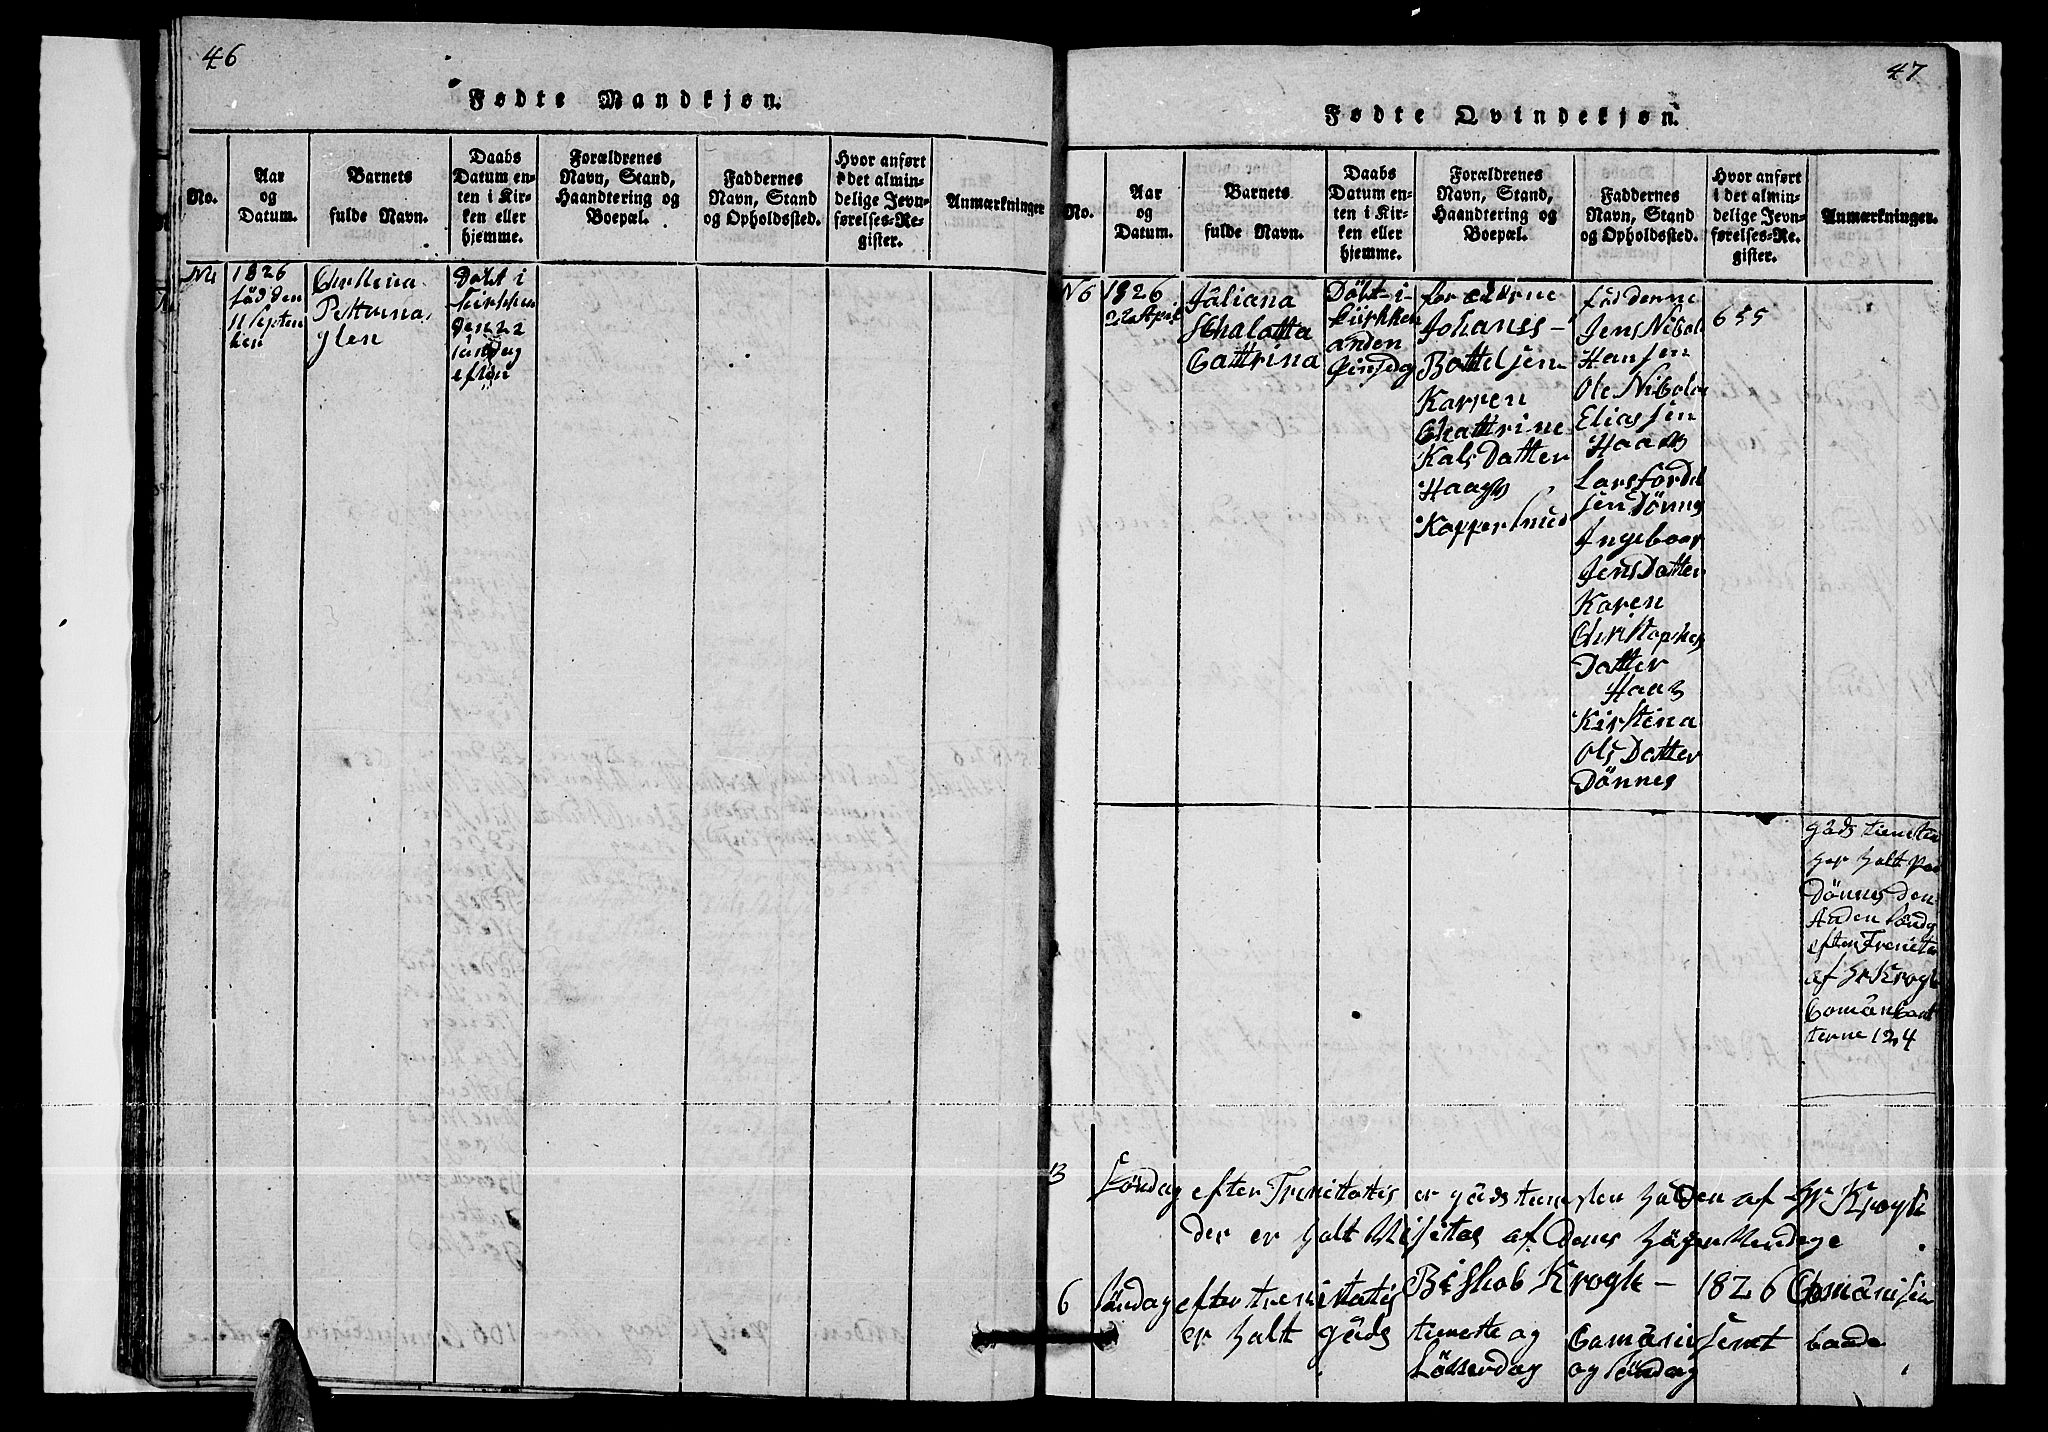 46
Fødte Mandkjøn.
No.
Aar
og
Datum.
Barnets
fulde Navn.
Daabs
Datum en-
ten i Kir-
ken eller
hjemme.
Forældrenes
Navn, Stand,
Haandtering og
Boepæl.
Faddernes
Navn, Stand
og Opholdssted.
Hvor anført
i det almin-
delige Jevn-
førelses-Re-
gister.
Anmærkninger
1826
fød den
11 Septem
ber
Døbt i
Kirken
den 22
Søndag
efter
47
Fødte Qvindekjøn.
No.
Aar
og
Datum.
Barnets
fulde Navn.
Daabs
Datum en-
ten i Kir-
ken eller
hjemme.
Forældrenes
Navn, Stand,
Haandtering og
Boepæl.
Faddernes
Navn, Stand
og Opholdssted.
Hvor anført
i det almin-
delige Jevn-
førelses-Re-
gister.
Anmærkninger.
N 6
1826
22 Apri
Juliana
Schalotta
Cattrina
Döbt i
Kirkken
anden
Pinsedag
forelderne
Johanes
Bottelsen
Karren
Chattrine
Kals Datter
Haage
Kopperhued
fadderne
Jens Nicola
Hansen
Ole Nicola
Eliassen
Haage
Lars fordel
sen Dönnes
Ingeboar
Jens Datter
Karen
Christophes
Datter
Haag
Kirstina
Ols Datter
Dönnes
655
guds tieneste
her halt paa
Dönnes den
Anden Söndg
efter Trenita
af Hr Krogh
Comünicant
terne 124
Söndag efter Trenitatis er guds tienesten halden af Hr Krogh
der er halt Misetas af
6 Söndag efter trenitatis Biskob Krogh - 1826
er halt guds tieneste og
Löverdag og Söndag
baade